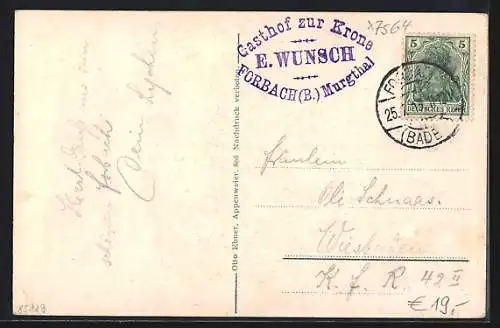 x7564
Gasthof zur Krone
E. WUNSCH
FORBACH (B.) Murgthal
5 5
DEUTSCHES REICH
25.
(BADE
Otto Ebner, Appenweier. 806 Nachdruck verboten.
Herzl. Gruß aus dem
schönen Forbach
Dein
Fräulein
Schnaas.
Wiesbaden
K. F. R. 42 II
€ 19,-